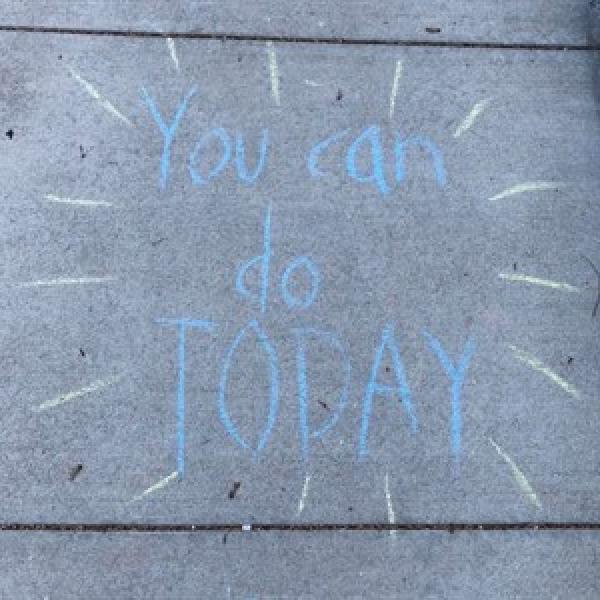 You can
do
TODAY